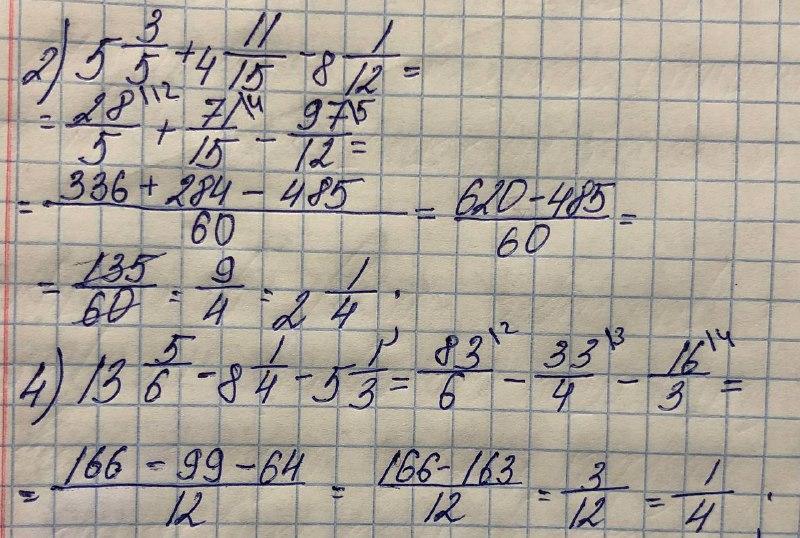 2) 5 3/5 + 4 11/15 - 8 1/12 =
= 28\12/5 + 71\4/15 - 97\5/12 =
= 336 + 284 - 485/60 = 620 - 485/60 =
= 135/60 = 9/4 = 2 1/4.
4) 13 5/6 - 8 1/4 - 5 1/3 = 83\2/6 - 33\3/4 - 16\4/3 =
= 166 - 99 - 64/12 = 166 - 163/12 = 3/12 = 1/4.